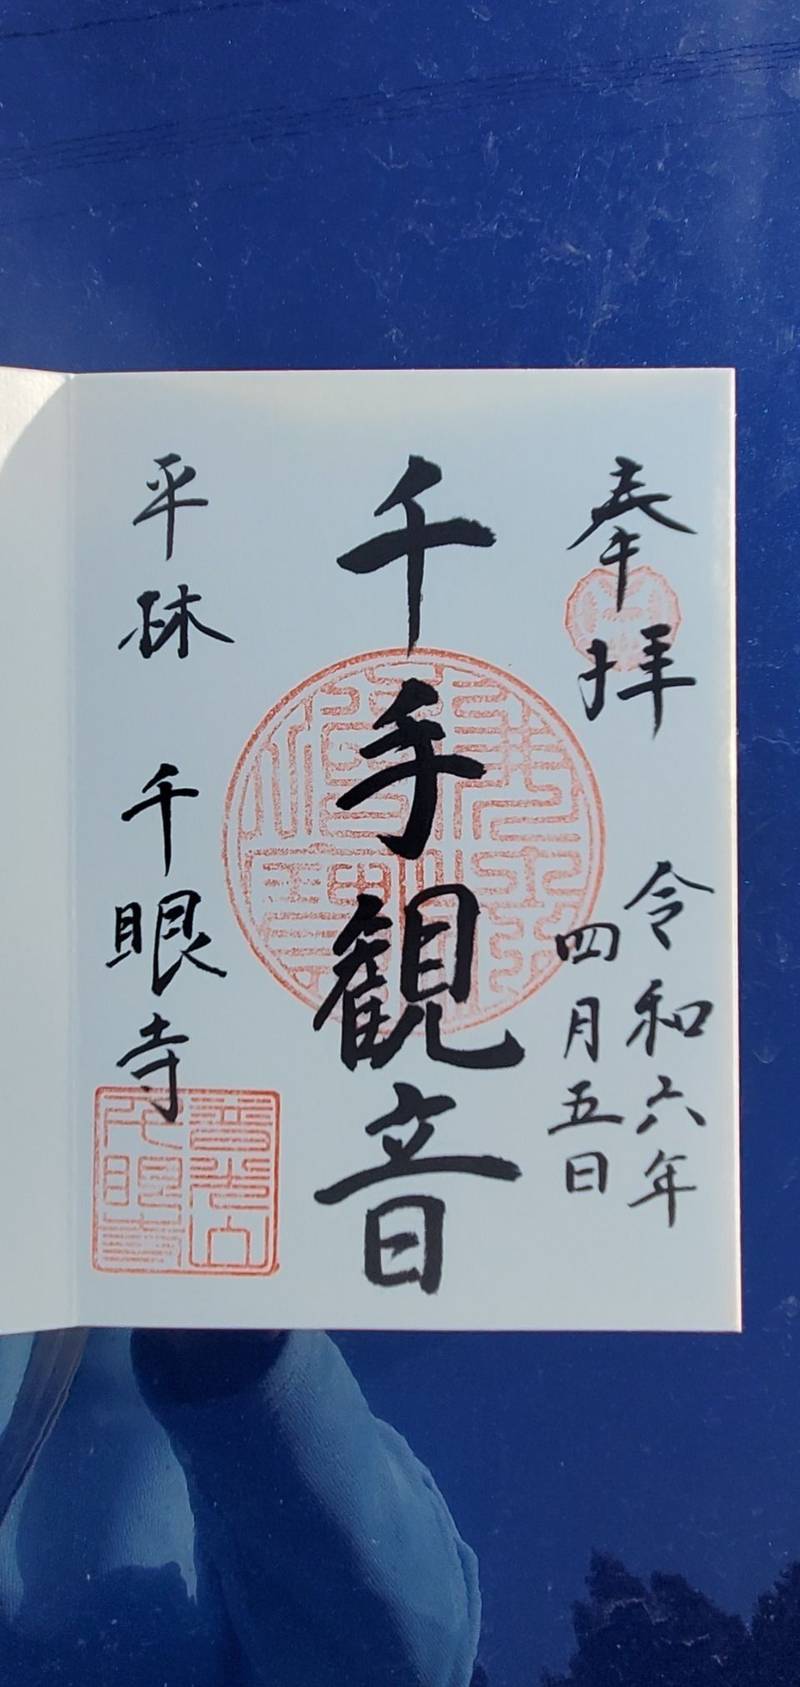 奉拝
令和六年
四月五日
千手観音
平林 千眼寺
普光山
千眼寺